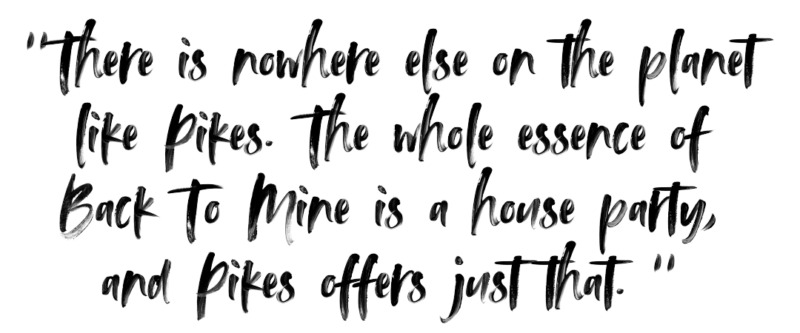 "There is nowhere else on the planet
like Pikes. The whole essence of
Back To Mine is a house party,
and Pikes offers just that. "